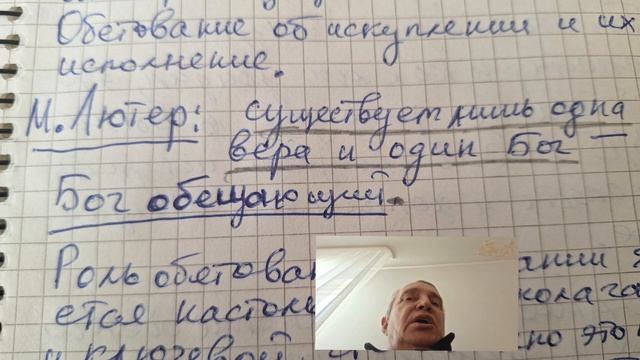 Обетование об искуплении и их
исполнение.
М. Лютер: существует лишь одна
вера и один Бог —
Бог обещающий.
Роль обетован
ется
и ключевой но это